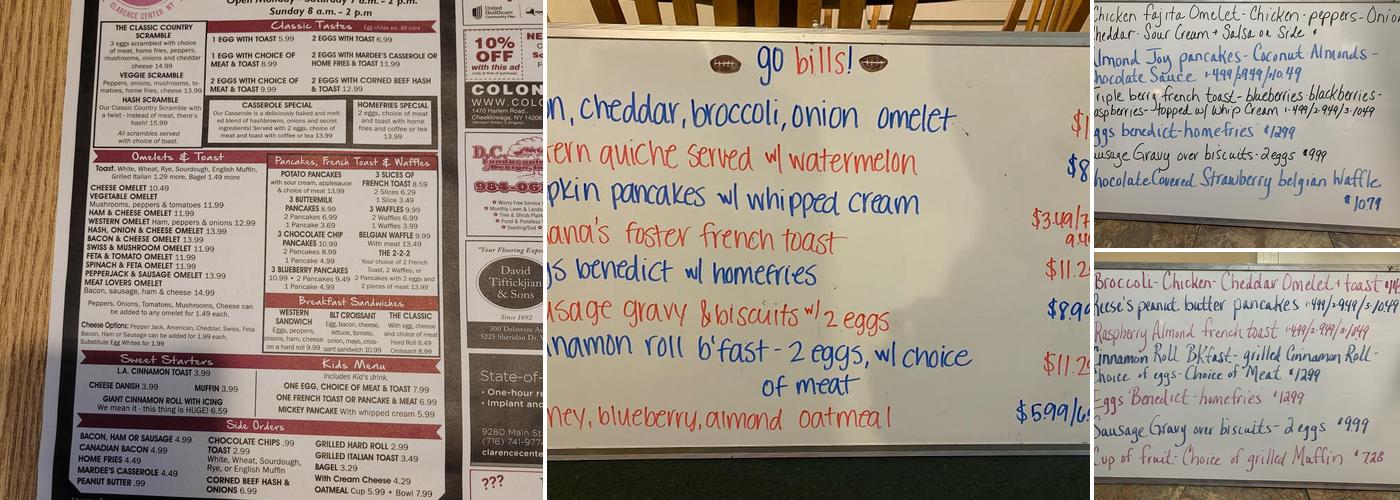 CLARENCE CENTER NY
Sunday 8 a.m. - 2 p.m
THE CLASSIC COUNTRY
SCRAMBLE
3 eggs scrambled with choice
of meat, home fries, peppers,
mushrooms, onions and
cheese 14.99
VEGGIE SCRAMBLE
Peppers, onions, mushrooms, to-
matoes, home fries, cheese 13.99
HASH SCRAMBLE
Our Classic Country Scramble with
a twist - instead of meat, there's
hash! 15.99
All scrambles served
with choice of toast.
Classic Tastes
Egg whites are .80 extra
1 EGG WITH TOAST 5.99
1 EGG WITH CHOICE OF
MEAT & TOAST 8.99
2 EGGS WITH CHOICE OF
MEAT & TOAST 9.99
2 EGGS WITH TOAST 6.99
2 EGGS WITH MARDEE'S CASSEROLE OR
HOME FRIES & TOAST 11.99
2 EGGS WITH CORNED BEEF HASH
& TOAST 12.99
CASSEROLE SPECIAL
Our Casserole is a deliciously baked and melt-
ed blend of hashbrowns, onions and secret
ingredients! Served with 2 eggs, choice of
meat and toast with coffee or tea 13.99
HOMEFRIES SPECIAL
2 eggs, choice of
meat and toast with home
fries and coffee or tea
13.99
Omelets & Toast
Toast: White, Wheat, Rye, Sourdough, English Muffin,
Grilled Italian 1.29 more, Bagel 1.49 more
CHEESE OMELET 10.49
VEGETABLE OMELET
Mushrooms, peppers & tomatoes 11.99
HAM & CHEESE OMELET 11.99
WESTERN OMELET Ham, peppers & onions 12.99
HASH, ONION & CHEESE OMELET 13.99
BACON & CHEESE OMELET 13.99
SWISS & MUSHROOM OMELET 11.99
FETA & TOMATO OMELET 11.99
SPINACH & FETA OMELET 11.99
PEPPERJACK & SAUSAGE OMELET 13.99
MEAT LOVERS OMELET
Bacon, sausage, ham & cheese 14.99
Peppers, Onions, Tomatoes, Mushrooms, Cheese can
be added to any omelet for 1.49 each.
Cheese Options: Pepper Jack, American, Cheddar, Swiss, Feta
Bacon, Ham or Sausage can be added for 1.99 each.
Substitute Egg Whites for 1.99
Pancakes, French Toast & Waffles
POTATO PANCAKES
with sour cream, applesauce
& choice of meat 13.99
3 BUTTERMILK
PANCAKES 8.99
2 Pancakes 6.99
1 Pancake 3.69
3 CHOCOLATE CHIP
PANCAKES 10.99
2 Pancakes 8.99
1 Pancake 4.99
3 BLUEBERRY PANCAKES
10.99 • 2 Pancakes 9.49
1 Pancake 4.99
3 SLICES OF
FRENCH TOAST 8.59
2 Slices 6.29
1 Slice 3.49
3 WAFFLES 9.99
2 Waffles 6.99
BELGIAN WAFFLE 9.99
With meat 13.49
THE 2-2-2
Your choice of 2 French
Toast, 2 Waffles, or
2 Pancakes with 2 eggs and
2 pieces of meat 13.99
Breakfast Sandwiches
WESTERN
SANDWICH
Eggs, peppers,
onions, ham, cheese
on a hard roll 9.99
BLT CROISSANT
Egg, bacon, cheese,
lettuce, tomato,
onion, mayo, crois-
sant sandwich 10.99
THE CLASSIC
With egg, cheese
and choice of meat
Hard Roll 8.49
Croissant 8.99
Sweet Starters
L.A. CINNAMON TOAST 3.99
CHEESE DANISH 3.99
MUFFIN 3.99
GIANT CINNAMON ROLL WITH ICING
We mean it - this thing is HUGE! 6.59
Kids Menu
Includes Kid's drink.
ONE EGG, CHOICE OF MEAT & TOAST 7.99
ONE FRENCH TOAST OR PANCAKE & MEAT 6.99
MICKEY PANCAKE With whipped cream 5.99
Side Orders
BACON, HAM OR SAUSAGE 4.99
CANADIAN BACON 4.99
HOME FRIES 4.49
MARDEE'S CASSEROLE 4.49
PEANUT BUTTER .99
CHOCOLATE CHIPS .99
TOAST 2.99
White, Wheat, Sourdough,
Rye, or English Muffin
CORNED BEEF HASH &
ONIONS 6.99
GRILLED HARD ROLL 2.99
GRILLED ITALIAN TOAST 3.49
BAGEL 3.29
With Cream Cheese 4.29
OATMEAL Cup 5.99 • Bowl 7.99
United
Healthcare
10%
OFF
with this ad
COLON
WWW.COLO
1470 Harlem Road
Cheektowaga, NY 14206
D.C.
Landscaping
984-063
Worry Free Service
"Your Flooring Exper
David
Tiftickjian
& Sons
Since 1892
300 Delaware Av
5225 Sheridan Dr.
State-of-
• One-hour r
• Implant and
9280 Main St
(716) 741-977
clarencecente
???
go bills!
n, cheddar, broccoli, onion omelet $1
tern quiche served w/ watermelon $8
pkin pancakes w/ whipped cream
$3.49/7
ana's foster french toast
s benedict w/ homefries $11.2
usage gravy & biscuits w/ 2 eggs $8.99
nnamon roll b'fast - 2 eggs, w/ choice $11.29
of meat
ney, blueberry, almond oatmeal $5.99/6
Chicken fajita Omelet - Chicken - peppers - Onio
heddar - Sour Cream + Salsa on Side
lmond Joy pancakes - Coconut - Almonds -
hocolate Sauce 1-4.99/2-9.49/3-10.49
riple berry french toast - blueberries - blackberries -
aspberries - topped w/ Whip Cream 1-4.99/2-9.49/3-10.49
ggs benedict - homefries $12.99
usage Gravy over biscuits - 2 eggs $9.99
hocolate Covered Strawberry belgian Waffle
$10.79
Broccoli - Chicken - Cheddar Omelet + toast
Reese's peanut butter pancakes 1-4.99/2-9.49/3-10.49
Raspberry Almond french toast 1-4.99/2-9.49/3-10.49
Cinnamon Roll Bkfast - grilled Cinnamon Roll -
hoice of eggs - Choice of Meat $12.99
Eggs Benedict - homefries $12.99
Sausage Gravy over biscuits - 2 eggs $9.99
Cup of fruit - Choice of grilled Muffin $7.28